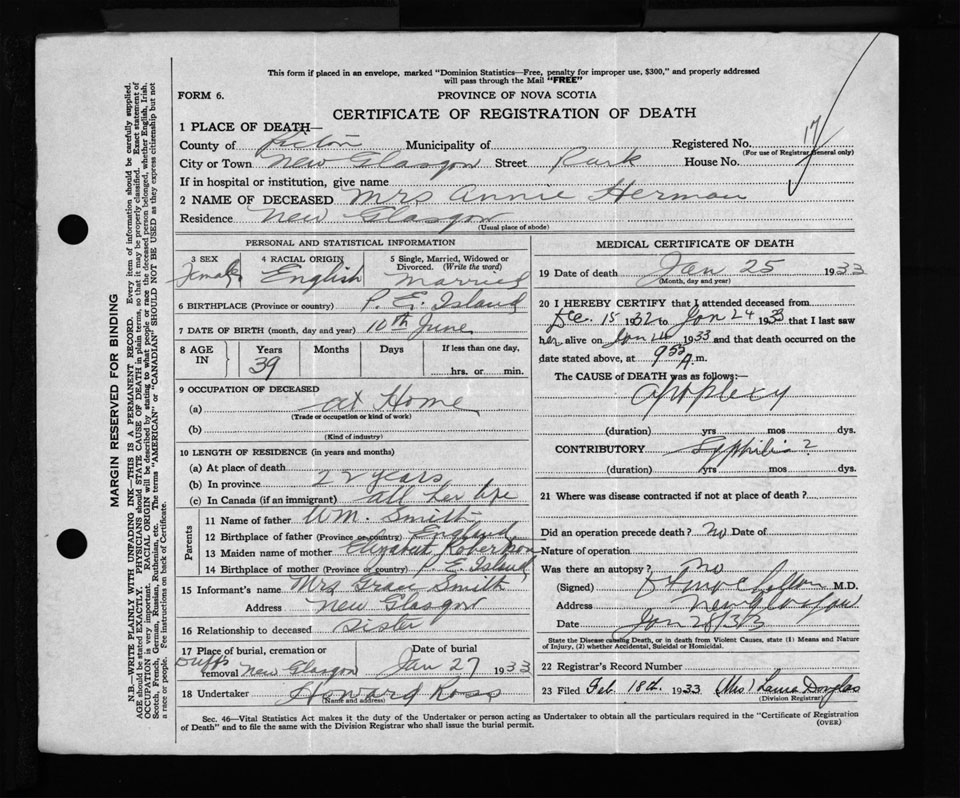 This form if placed in an envelope, marked "Dominion Statistics—Free, penalty for improper use, $300," and properly addressed
will pass through the Mail "FREE"
FORM 6.
PROVINCE OF NOVA SCOTIA
CERTIFICATE OF REGISTRATION OF DEATH
1 PLACE OF DEATH—
County of Pictou Municipality of Registered No. 17
(For use of Registrar General only)
City or Town New Glasgow Street Park House No.
If in hospital or institution, give name
2 NAME OF DECEASED Mrs Annie Herman
Residence New Glasgow
(Usual place of abode)
PERSONAL AND STATISTICAL INFORMATION
3 SEX Female
4 RACIAL ORIGIN English
5 Single, Married, Widowed or Divorced. (Write the word) Married
6 BIRTHPLACE (Province or country) P. E. Island
7 DATE OF BIRTH (month, day and year) 10th June
8 AGE IN Years Months Days If less than one day,
39 hrs. or min.
9 OCCUPATION OF DECEASED
(a) at Home
(Trade or occupation or kind of work)
(b)
(Kind of industry)
10 LENGTH OF RESIDENCE (in years and months)
(a) At place of death
(b) In province 22 years
(c) In Canada (if an immigrant) all her life
Parents
11 Name of father Wm. Smith
12 Birthplace of father (Province or country) England
13 Maiden name of mother Elizabeth Robertson
14 Birthplace of mother (Province or country) P E. Island
15 Informant's name Mrs Grace Smith
Address New Glasgow
16 Relationship to deceased Sister
17 Place of burial, cremation or removal Duffs New Glasgow
Date of burial Jan 27 1933
18 Undertaker Howard Ross
(Name and address)
MEDICAL CERTIFICATE OF DEATH
19 Date of death Jan 25 1933
(Month, day and year)
20 I HEREBY CERTIFY that I attended deceased from
Dec. 15 1932 to Jan 24 1933 that I last saw
her alive on Jan 24 1933 and that death occurred on the
date stated above, at 9 55 A. m.
The CAUSE of DEATH was as follows:—
Apoplexy
(duration) yrs mos dys.
CONTRIBUTORY Syphilis ?
(duration) yrs mos dys.
21 Where was disease contracted if not at place of death?
Did an operation precede death? No Date of
Nature of operation
Was there an autopsy? No
(Signed) M.D.
Address New Glasgow
Date Jan 28/33
State the Disease causing Death, or in death from Violent Causes, state (1) Means and Nature
of Injury, (2) whether Accidental, Suicidal or Homicidal.
22 Registrar's Record Number
23 Filed Feb. 18th. 1933 (Mrs) Laura Douglas
(Division Registrar)
Sec. 46—Vital Statistics Act makes it the duty of the Undertaker or person acting as Undertaker to obtain all the particulars required in the "Certificate of Registration
of Death" and to file the same with the Division Registrar who shall issue the burial permit.
(OVER)
MARGIN RESERVED FOR BINDING
N.B.—WRITE PLAINLY WITH UNFADING INK—THIS IS A PERMANENT RECORD. Every item of information should be carefully supplied.
AGE should be stated EXACTLY. PHYSICIANS should STATE CAUSE OF DEATH in plain terms, so that it may be properly classified. Exact statement of
OCCUPATION is very important. RACIAL ORIGIN will be described by stating to what people or race the deceased person belonged, whether English, Irish,
Scotch, French, German, Russian, Ruthenian, etc. The terms "AMERICAN" or "CANADIAN" SHOULD NOT BE USED as they express citizenship but not
a race or people. See instructions on back of Certificate.